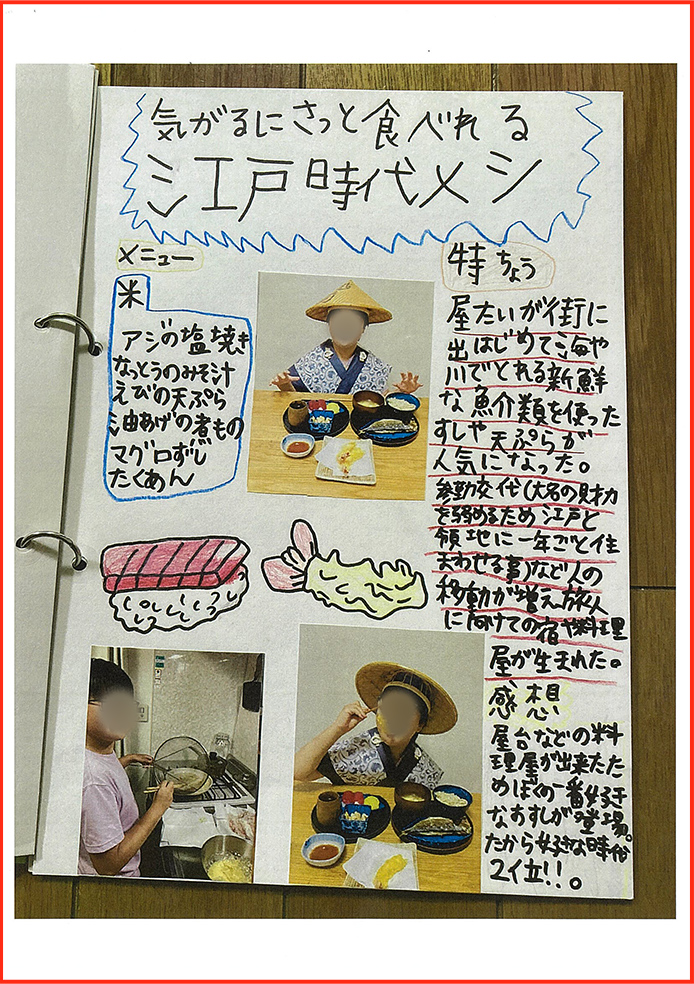 気がるにさっと食べれる
江戸時代メシ
メニュー
米
アジの塩焼き
なっとうのみそ汁
えびの天ぷら
油あげの煮もの
マグロずし
たくあん
特ちょう
屋たいが街に
出はじめて海や
川でとれる新鮮
な魚介類を使った
すしや天ぷらが
人気になった。
参勤交代(大名の財力
を弱めるため江戸と
領地に一年ごと住
まわせる事)など人の
移動が増え旅人
に向けての宿や料理
屋が生まれた。
感想
屋台などの料
理屋が出来たた
めぼくの一番好き
なおすしが登場。
だから好きな時代
2位!!。